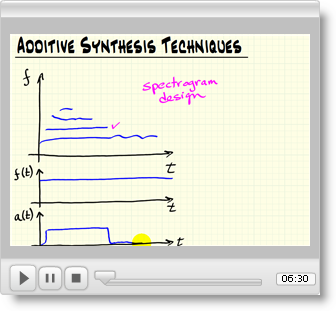 ADDITIVE SYNTHESIS TECHNIQUES
f
spectrogram
design
t
f(t)
t
a(t)
t
06:30